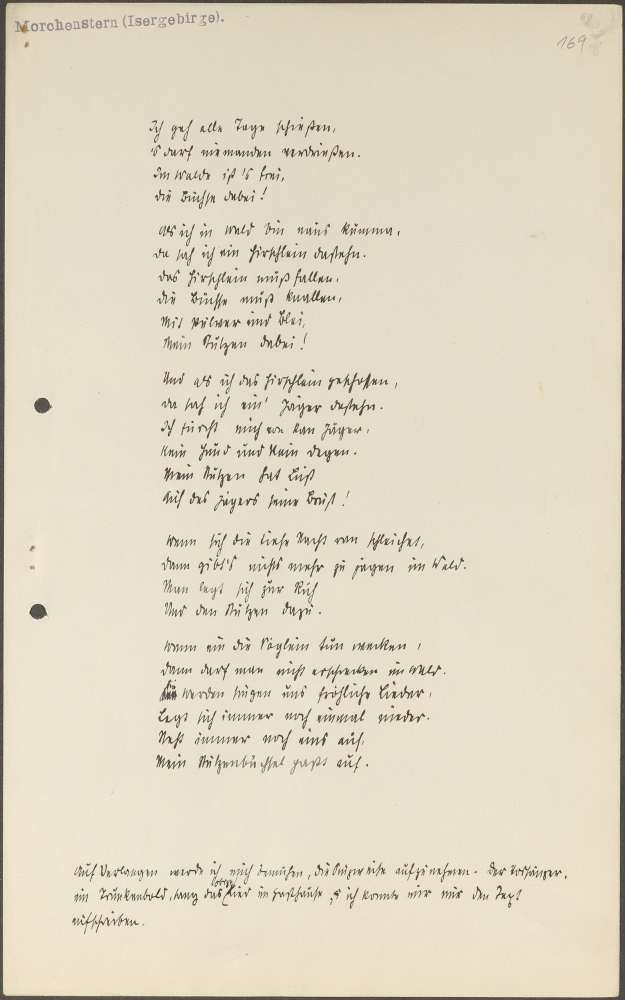 Morchenstern (Isergebirge).
169
Ich geh alle Tage schießen,
's darf niemanden verdrießen.
Im Walde ist 's frei,
die Büchse dabei!
Als ich in Wald bin naus kumma,
da sah ich ein Hirschlein dastehn.
Das Hirschlein muß fallen,
die Büchse muß knallen,
Mit Pulver und Blei,
Mein Stutzen dabei!
Und als ich das Hirschlein geschossen,
da sah ich ein' Jäger dastehn.
Ich fürcht mich vor kan Jäger,
kein Hund und kein Degen.
Mein Stutzen hat Lust
Auf des Jägers seine Brust!
Wenn sich die tiefe Nacht ran schleichet,
dann gibt's nichts mehr zu jagen im Wald.
Man legt sich zur Ruh
Und den Stutzen dazu.
Wenn ein die Vöglein tun wecken,
dann darf man nicht erschrecken im Wald.
Sie werden singen uns fröhliche Lieder,
Legt sich immer noch einmal nieder.
Steht immer noch eins auf,
Mein Stutzenbüchsel paßt auf.
Auf Verlangen werde ich mich bemühen, die Singweise aufzunehmen. Der Vorsänger,
ein Trunkenbold, sang das Lied im Gasthause, & ich konnte mir nur den Text
aufschreiben.